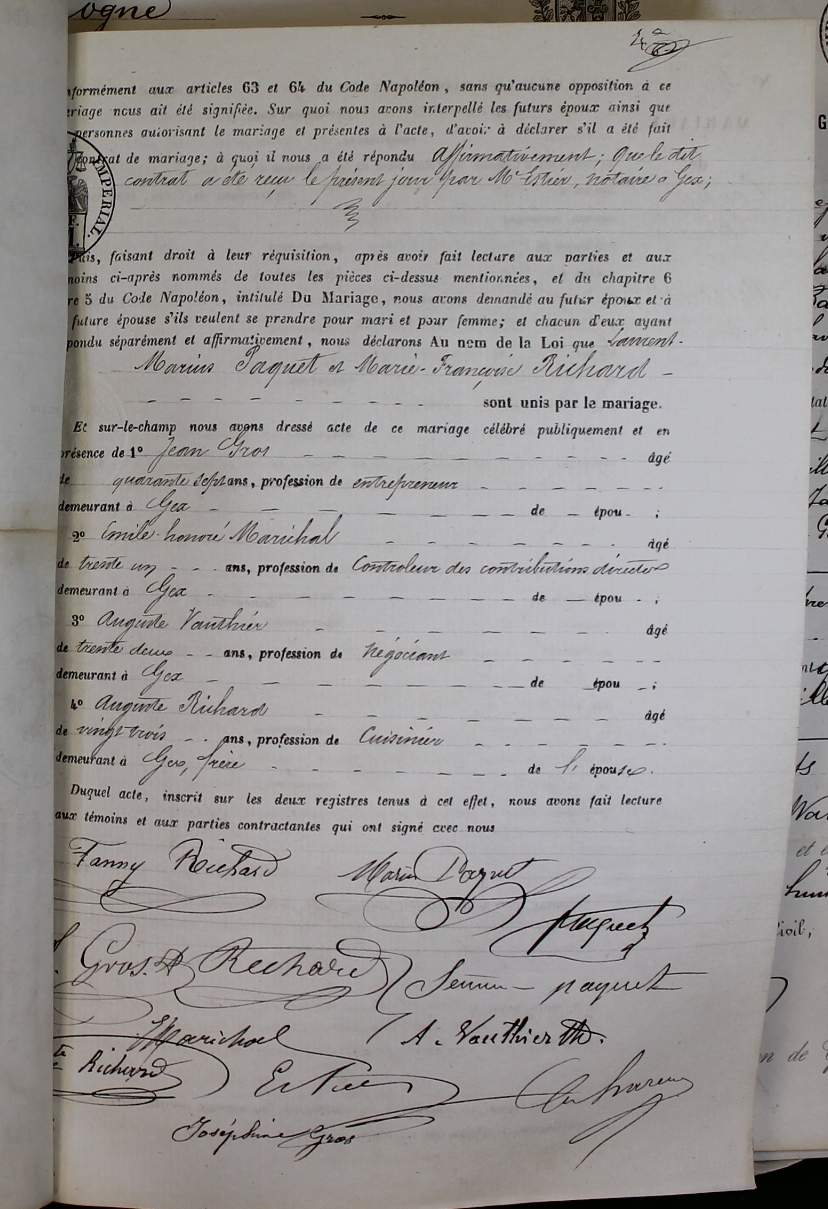 ogne
formément aux articles 63 et 64 du Code Napoléon, sans qu'aucune opposition à ce
riage nous ait été signifiée. Sur quoi nous avons interpellé les futurs époux ainsi que
personnes autorisant le mariage et présentes à l'acte, d'avoir à déclarer s'il a été fait
contrat de mariage; à quoi il nous a été répondu Affirmativement; que le dit
contrat a été reçu le présent jour par Me Estier, notaire à Gex;
IMPERIAL.
Puis, faisant droit à leur réquisition, après avoir fait lecture aux parties et aux
moins ci-après nommés de toutes les pièces ci-dessus mentionnées, et du chapitre 6
re 5 du Code Napoléon, intitulé Du Mariage, nous avons demandé au futur époux et à
future épouse s'ils veulent se prendre pour mari et pour femme; et chacun d'eux ayant
pondu séparément et affirmativement, nous déclarons Au nom de la Loi que Laurent-
Marius Paquet et Marie-Françoise Richard -
sont unis par le mariage.
Et sur-le-champ nous avons dressé acte de ce mariage célébré publiquement et en
présence de 1o Jean Gros âgé
de quarante sept ans, profession de entrepreneur
demeurant à Gex de épou ;
2o Emile honoré Maréchal âgé
de trente un ans, profession de Controleur des contributions directes
demeurant à Gex de épou ;
3o Auguste Vauthier âgé
de trente deux ans, profession de négociant
demeurant à Gex de épou ;
4o Auguste Richard âgé
de vingt trois ans, profession de Cuisinier
demeurant à Gex, frère de l' épouse.
Duquel acte, inscrit sur les deux registres tenus à cet effet, nous avons fait lecture
aux témoins et aux parties contractantes qui ont signé avec nous
Fanny Richard Marius Paquet
Paquet
Gros. Richard paquet
Marichal A. Vauthier
Richard
Joséphine Gros